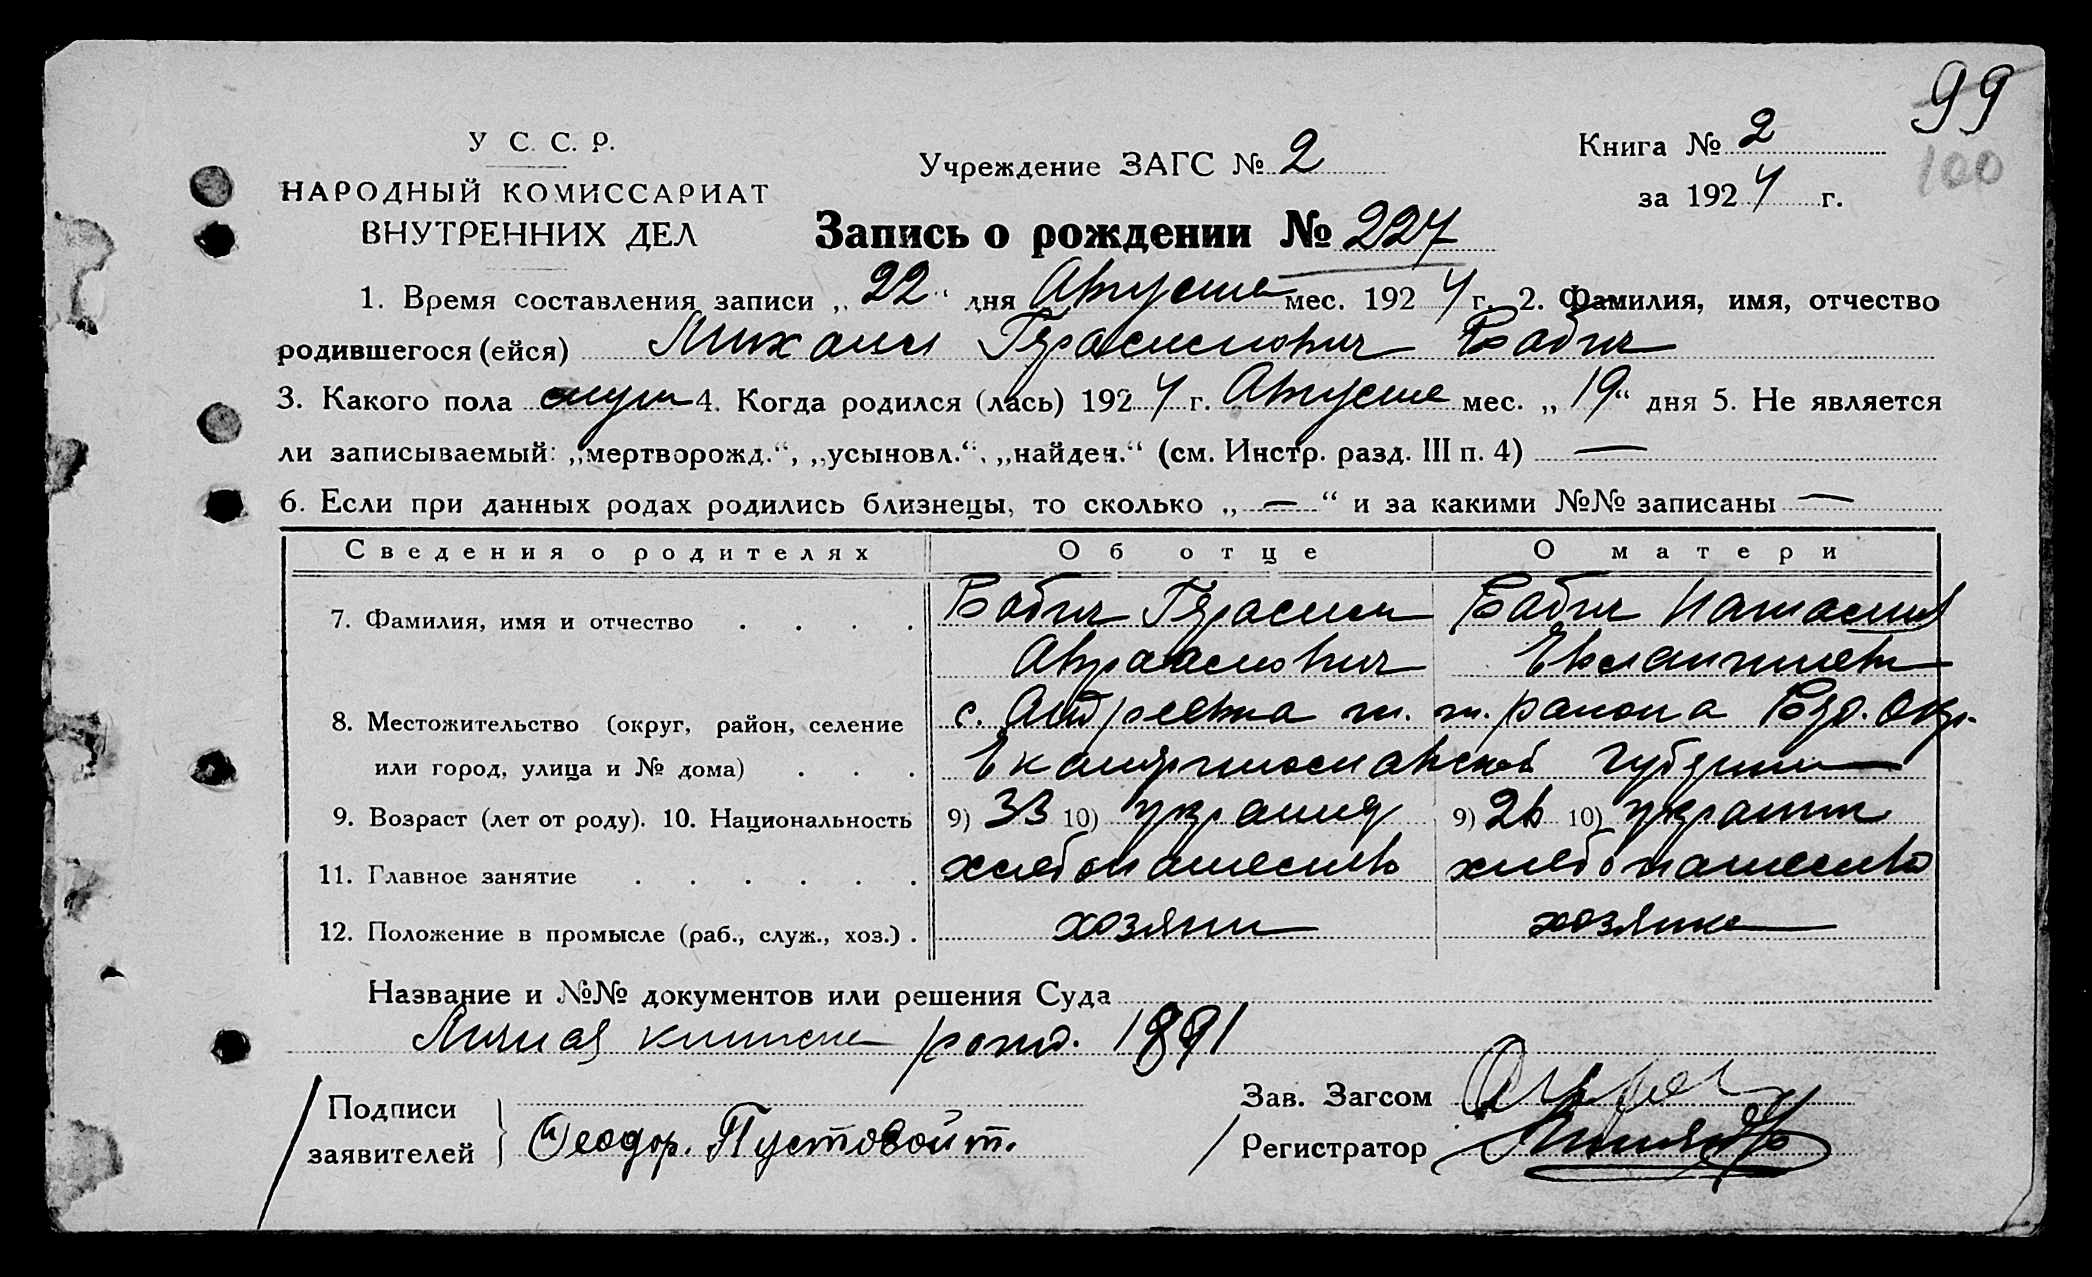 99
100
У. С. С. Р.
НАРОДНЫЙ КОМИССАРИАТ
ВНУТРЕННИХ ДЕЛ
Учреждение ЗАГС № 2
Книга № 2
за 1924 г.
Запись о рождении № 227
1. Время составления записи „22“ дня Августа мес. 1924 г. 2. Фамилия, имя, отчество
родившегося (ейся) Михаил Герасимович Бабич
3. Какого пола муж 4. Когда родился (лась) 1924 г. Августа мес. „19“ дня 5. Не является
ли записываемый: „мертворожд.“, „усыновл.“, „найден.“ (см. Инстр. разд. III п. 4) —
6. Если при данных родах родились близнецы, то сколько „—“ и за какими №№ записаны —
Сведения о родителях Об отце О матери
7. Фамилия, имя и отчество . . . . Бабич Герасим Бабич
Авраамович
8. Местожительство (округ, район, селение с. Андреевка т. т. района Бер. Окр.
или город, улица и № дома) . . . Екатеринославской губернии
9. Возраст (лет от роду). 10. Национальность 9) 33 10) украинец 9) 26 10) украин
11. Главное занятие . . . . . . хлебопашество хлебопашество
12. Положение в промысле (раб., служ., хоз.) . хозяин хозяйка
Название и №№ документов или решения Суда
Личная книжка 1891
Подписи
заявителей
Феодор. Пустовойт.
Зав. Загсом
Регистратор